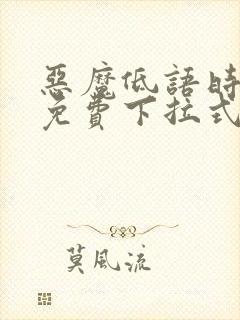 惡魔低語時
免費下拉式
莫風流